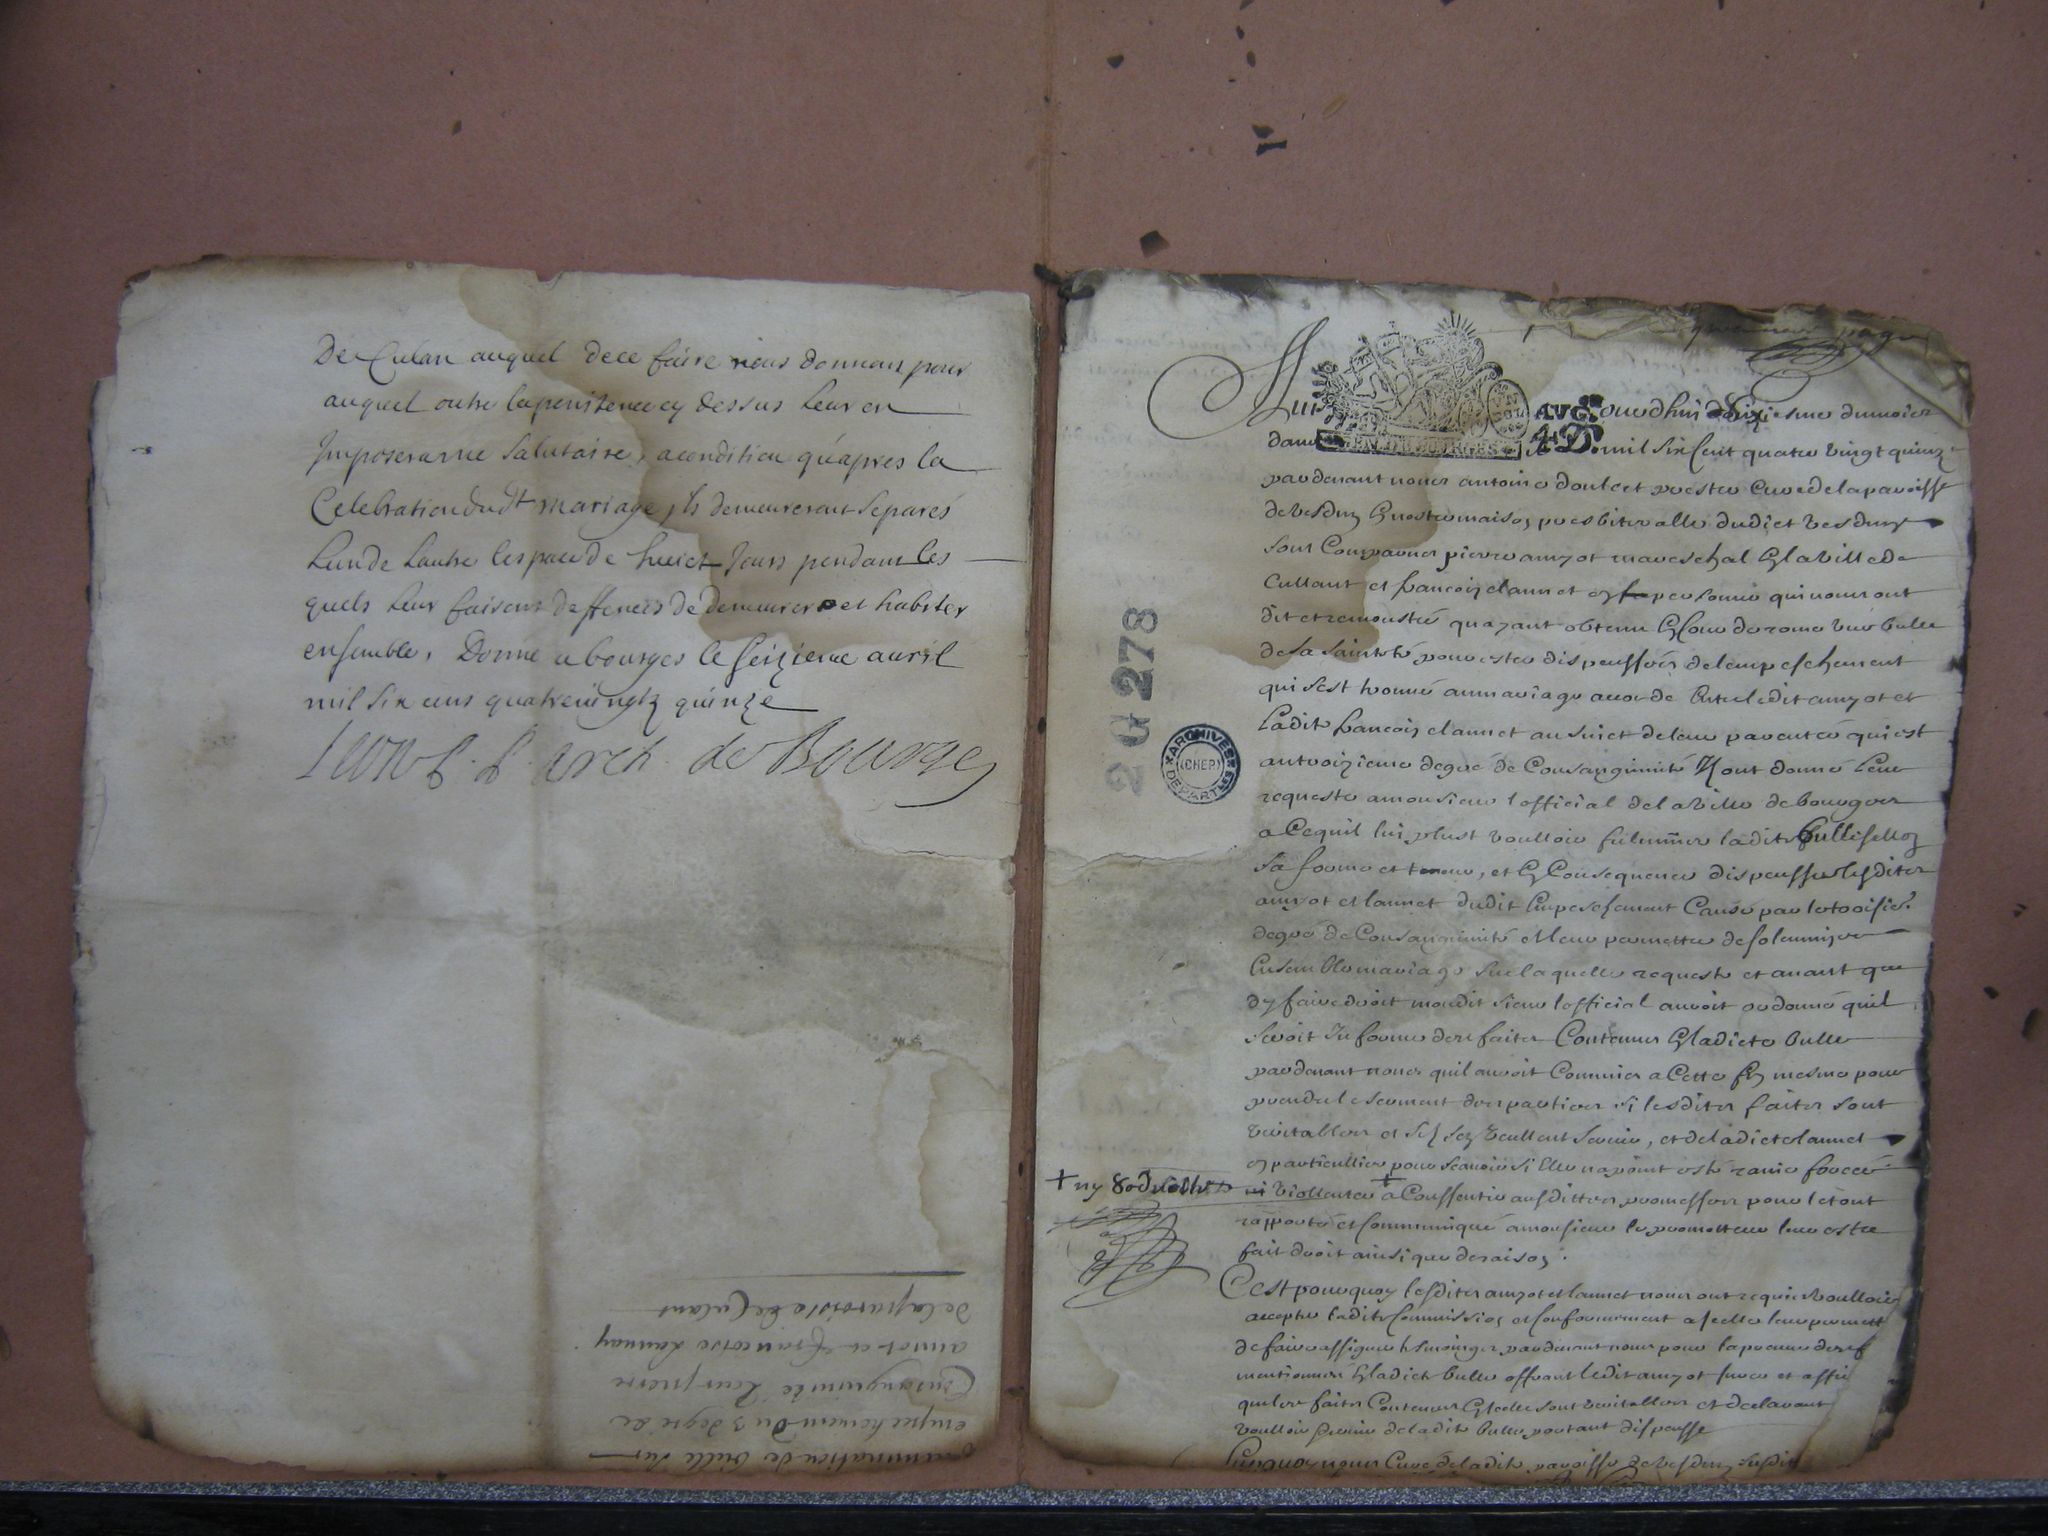 De Culan auquel de ce faire nous donnons pouv
auquel outre la penitence cy dessus leur en
Imposera une salutaire, a condition qu'apres la
Celebration dudt mariage, ils demeureront separés
L'un de L'autre l'espace de huict Jours pendant les
quels leur faisons deffences de demeurer et habiter
ensemble. Donné a bourges le seizieme auril
mil six cens quatreuingtz quinze
L. arch. de Bourges
fulmination de bulle sur
empechement du 3 degré de
Consanguinité pour pierre
amiot et françoise Lannay
de la paroisse de Culant
2 G 278
ARCHIVES
(CHER)
DEPARTLES
premiere page
Auiourdhui dixiesme du moies
GEN. DE BOURGES
AVG.on
4 D.
mil six Cent quatre vingt quinze
pardeuant nous antoine doulcet prestre Curé de la paroisse
de vesdung En nostre maison presbiteralle dudict vesdung
sont Comparues pierre amyot mareschal En la ville de
Cullant et francoise lannet en personne qui nous ont
dit et remonstré quayant obtenu En Cour de rome une bulle
de sa sainteté pour estre dispensses de lempeschement
qui sest trouué au mariage accordé Entre ledit amyot et
Ladite francoise lannet au suiet de leur parenté qui est
au troizieme degré de Consanguinité Ils ont donné leur
requeste a monsieur lofficial de la ville de bourges
a Ce quil lui plust voulloir fulminer ladite bulle sellon
sa forme et teneur, et En Consequence dispensser lesdites
amyot et lannet dudit Empeschement Causé par le troisie.
degré de Consanguinité et leur permettre de solemnizer
Ensemble mariage sur laquelle requeste et auant que
dy faire droit mondit sieur lofficial auroit ordonné quil
seroit Informé des faites Contenues En ladicte bulle
pardeuant noues quil auroit Commies a Cette fin mesme pour
prendre le serment des parties si lesdites faites sont
veritables et silz sen veullent seruir, et de ladicte lannet
en particullier pour scauoir si Elle na point esté rauie forcée
+ ny
violentée + a Conssentir ausdittes promesses pour le tout
rapporté et Communiqué a monsieur le promotteur leur estre
fait droit ainsi que de raison.
Cest pourquoy lesdites amyot et lannet nous ont requies voulloir
accepter ladite Commission et Conformement a Icelle leur permett
de faire assigner les tesmoinges pardeuant nous pour la preuue des
mentionnés En ladicte bulle offrant ledit amyot
que les faites Contenues En Icelle sont veritables et declarant
voulloir se seruir de ladite bulle portant dispensse
Curé de ladite paroisse de vesdung susdit